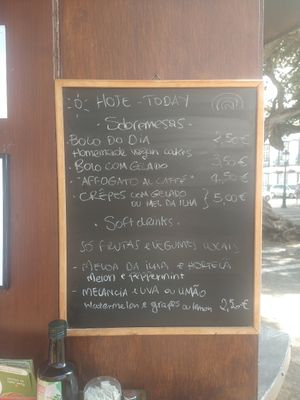 HOJE - TODAY
. Sobremesas .
- BOLO DO DIA 2,50€
Homemade vegan cakes
- BOLO COM GELADO 3,50€
- "AFFOGATO AL CAFFÉ" 4,50€
- CRÊPES COM GELADO } 5,00€
OU MEL DA ILHA
. Soft drinks .
SÓ FRUTAS E LEGUMES LOCAIS
- MELOA DA ILHA E HORTELÃ
Melon e peppermint
- MELANCIA E UVA OU LIMÃO
Watermelon e grapes ou lemon 2,50€